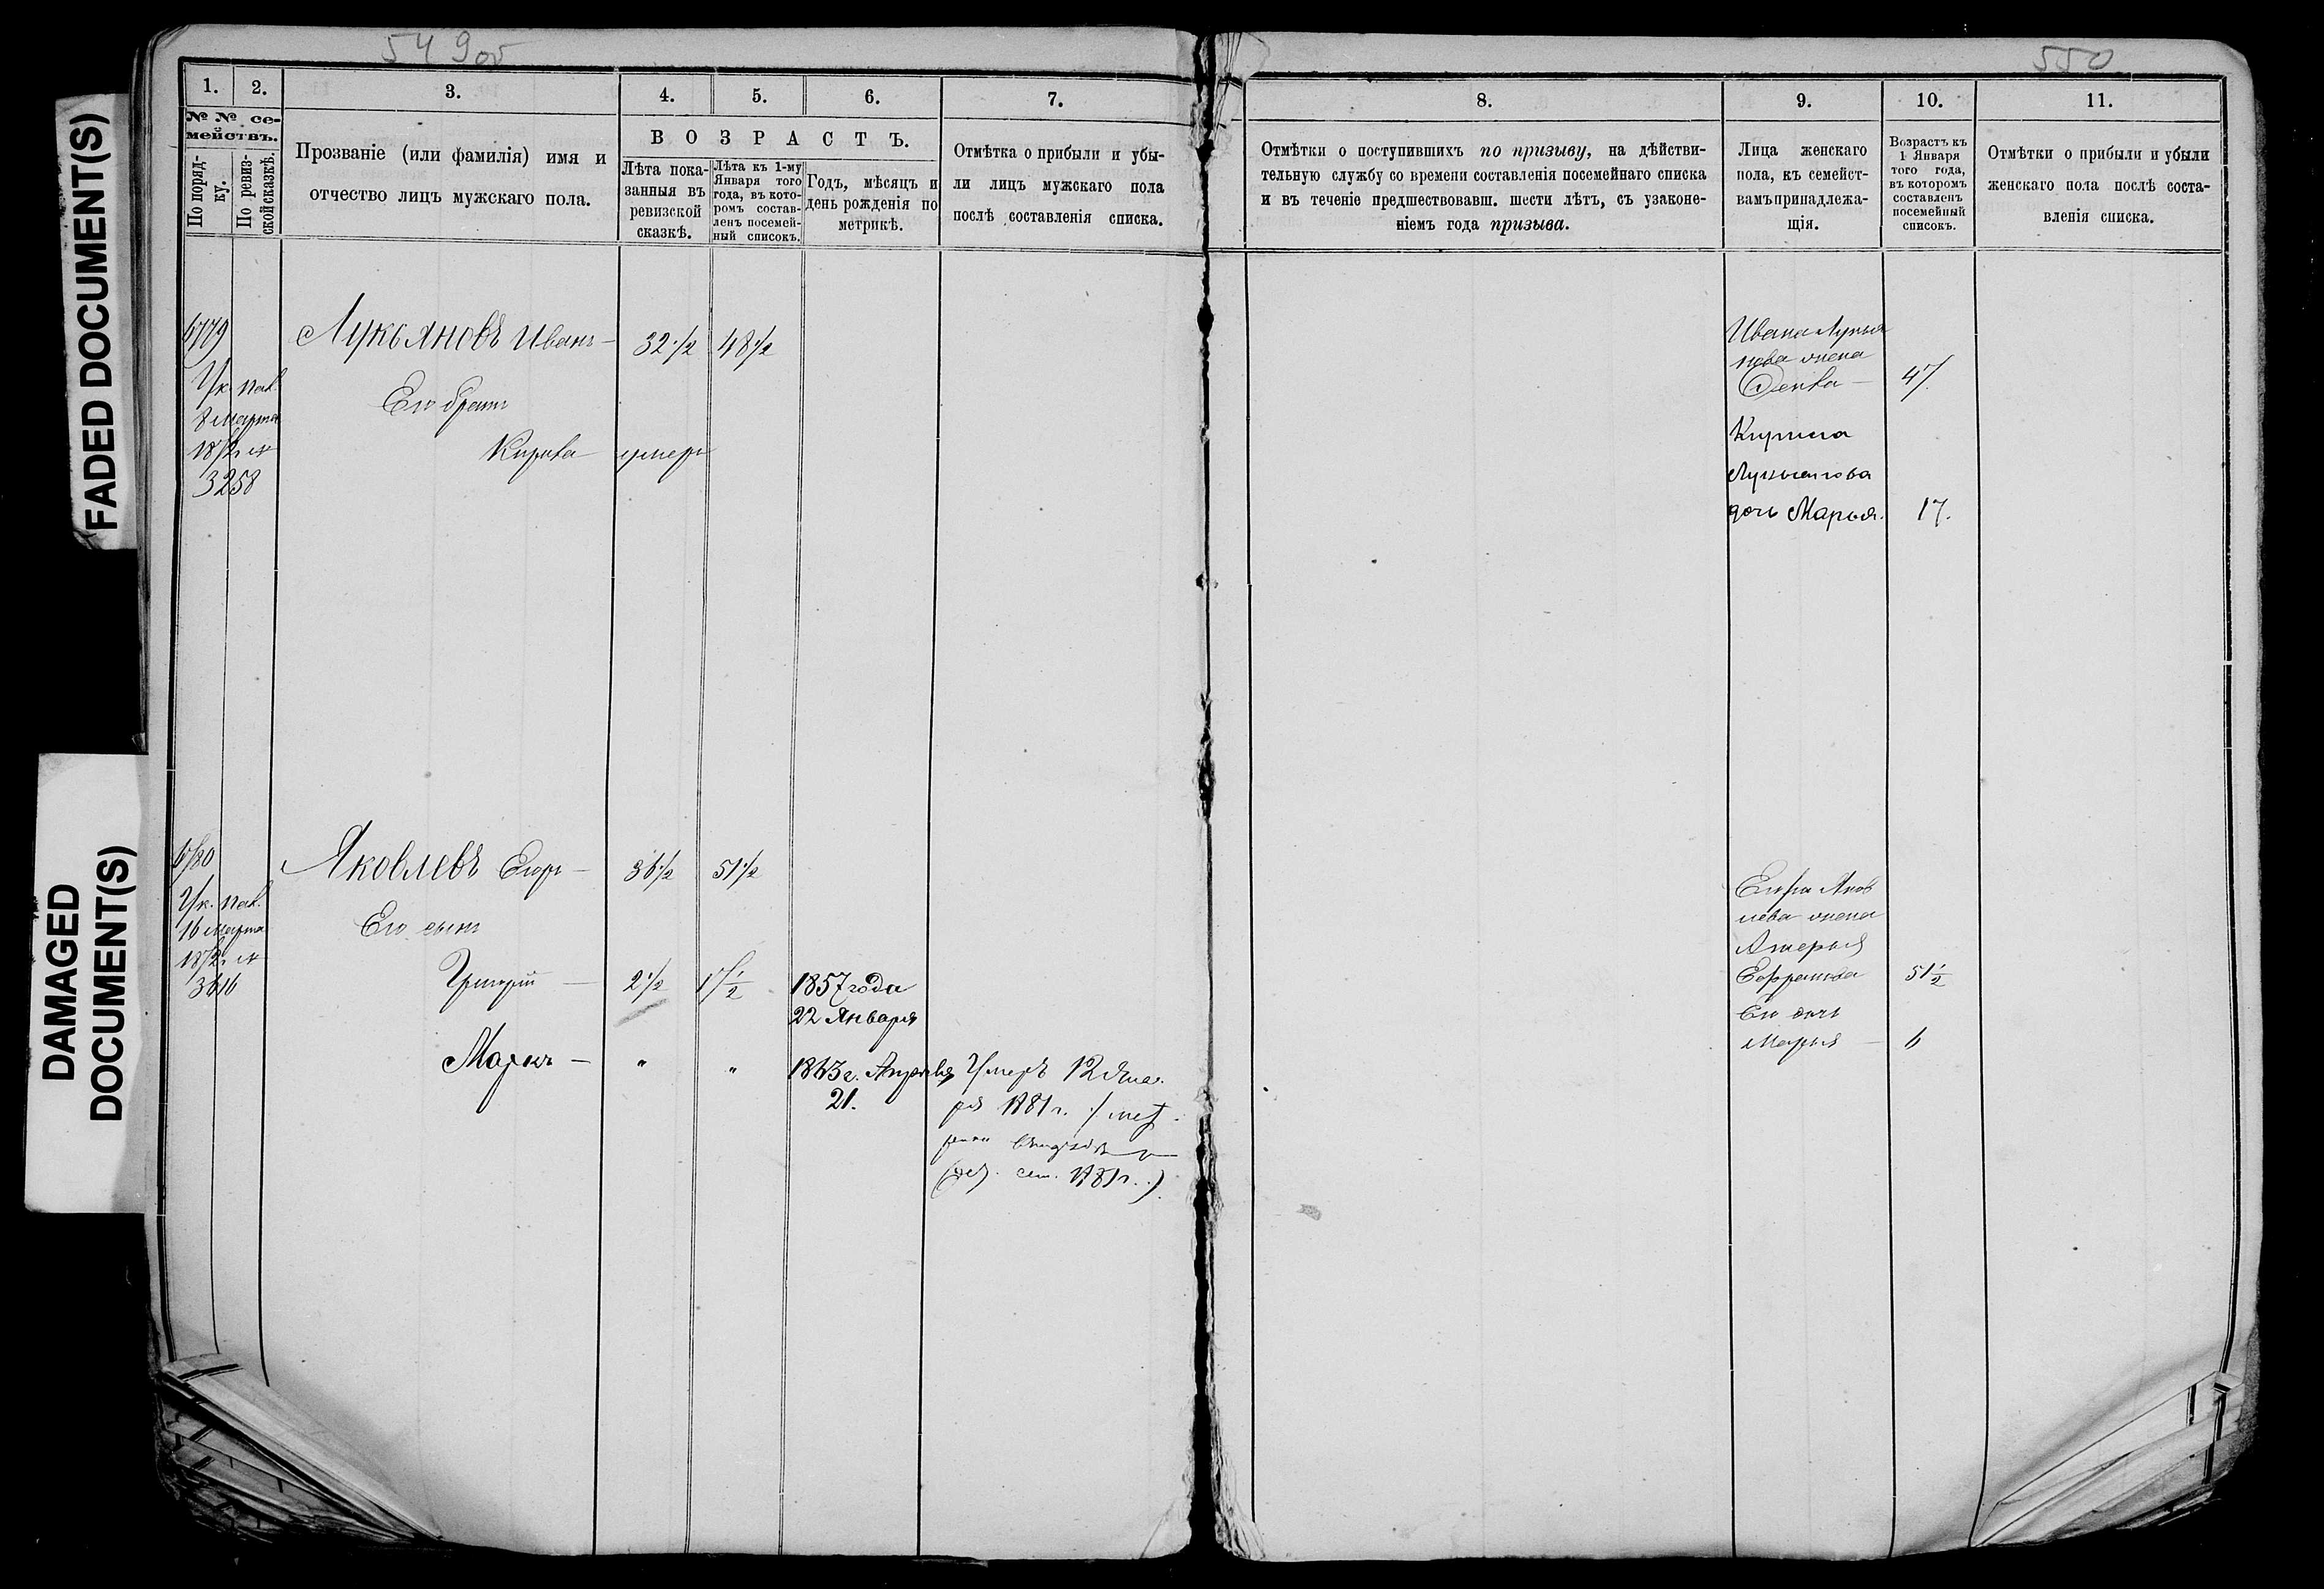 FADED DOCUMENT(S)
DAMAGED
DOCUMENT(S)
549об
550
1.
2.
3.
4.
5.
6.
7.
№ № се-
мействъ.
По поряд-
ку.
По ревиз-
ской сказкѣ.
Прозваніе (или фамилія) имя и
отчество лицъ мужскаго пола.
ВОЗРАСТЪ.
Лѣта пока-
занныя въ
ревизской
сказкѣ.
Лѣта къ 1-му
Января того
года, въ кото-
ромъ состав-
ленъ посемей-
ный списокъ.
Годъ, мѣсяцъ и
день рожденія по
метрикѣ.
Отмѣтка о прибыли и убы-
ли лицъ мужскаго пола
послѣ составленія списка.
8.
9.
10.
11.
Отмѣтки о поступившихъ по призыву, на дѣйстви-
тельную службу со времени составленія посемейнаго списка
и въ теченіе предшествовавш. шести лѣтъ, съ узаконе-
ніемъ года призыва.
Лица женскаго
пола, къ семейст-
вамъ принадлежа-
щія.
Возрастъ къ
1 Января
того года,
въ которомъ
составленъ
посемейный
списокъ.
Отмѣтки о прибыли и убыли
женскаго пола послѣ соста-
вленія списка.
6779
Лукьяновъ Иванъ — 32 1/2 48 1/2
Ук. пал.
8 Марта
1872 г. №
3258
Его братъ
умеръ
Ивана Лукья
нова жена
47
Лукьянова
дочь Марья. 17.
6780
Яковлевъ Егоръ — 36 1/2 51 1/2
Ук. пал.
16 Марта
1872 г. №
3616
Его сынъ
Григорій — 2 1/2 17 1/2 1857 года
22 Января
Маркъ — " " 1863 г. Апрѣля
21.
Умеръ 12 Янва.
ря 1881 г. / мет.
1881 г.)
Егора Яков
лева жена
51 1/2
Его дочь
Марья — 6